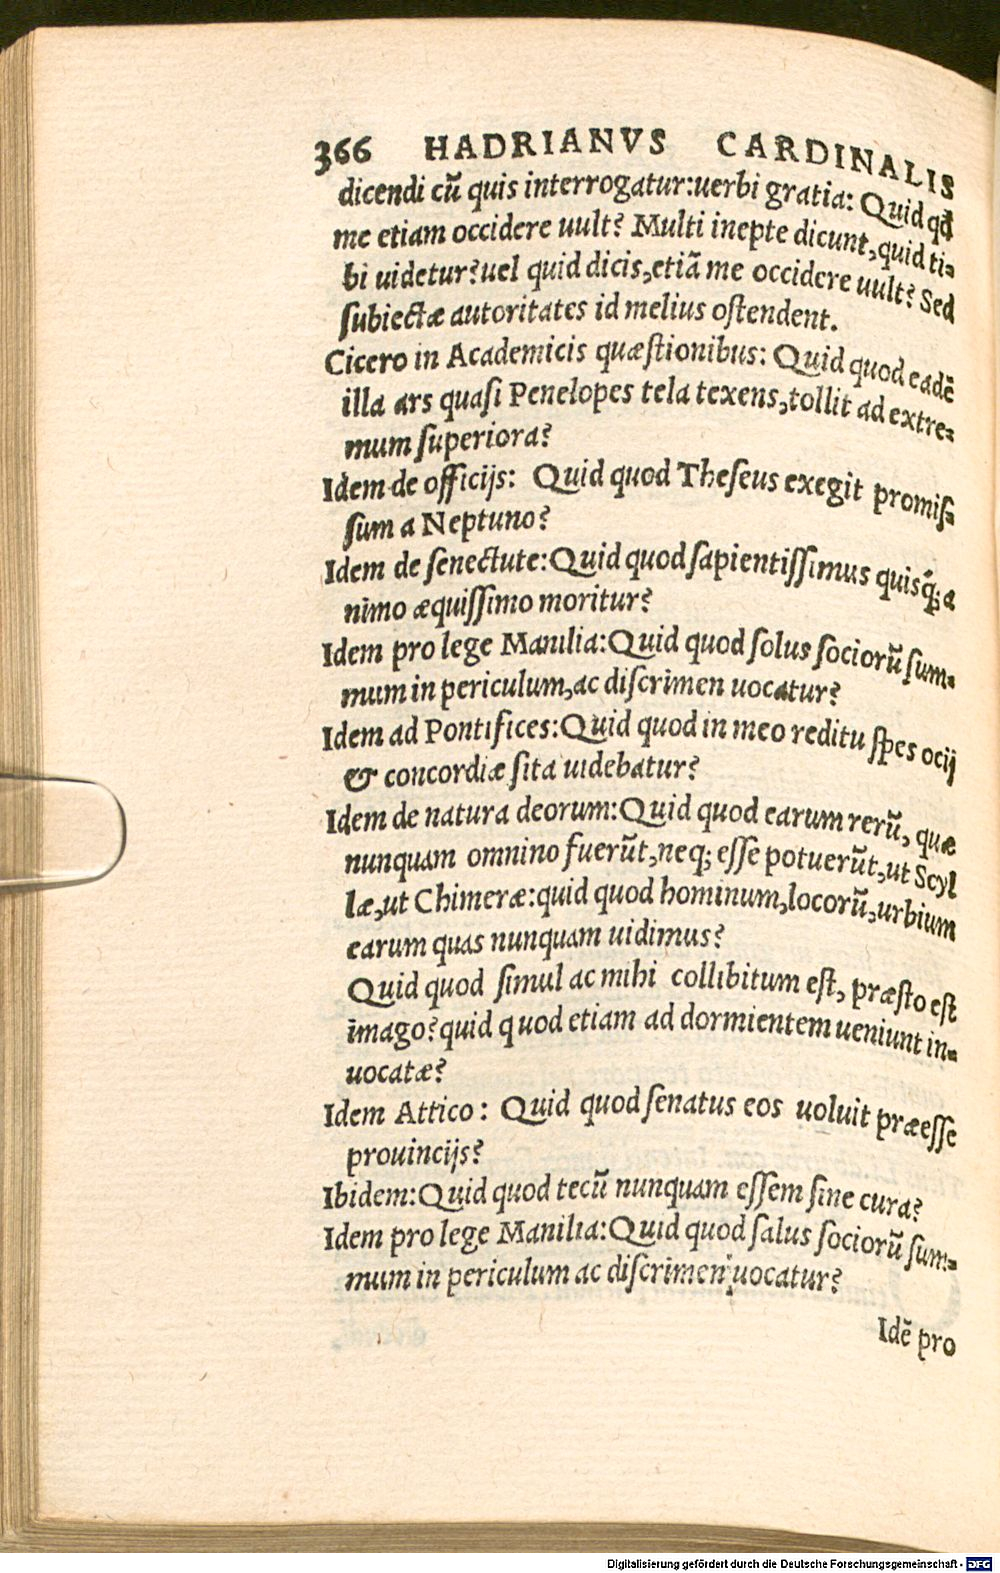 366 HADRIANVS CARDINALIS
dicendi cũ quis interrogatur:uerbi gratia: Quid qđ
me etiam occidere uult? Multi inepte dicunt,quid ti-
bi uidetur?uel quid dicis,etiã me occidere uult? Sed
ſubiectæ autoritates id melius oſtendent.
Cicero in Academicis quæſtionibus: Quid quod eadẽ
illa ars quaſi Penelopes tela texens,tollit ad extre-
mum ſuperiora?
Idem de officijs: Quid quod Theſeus exegit promiſ-
ſum a Neptuno?
Idem de ſenectute:Quid quod ſapientiſſimus quisq́; a
nimo æquiſſimo moritur?
Idem pro lege Manilia:Quid quod ſolus ſociorũ ſum-
mum in periculum,ac diſcrimen uocatur?
Idem ad Pontifices:Quid quod in meo reditu ſpes ocij
& concordiæ ſita uidebatur?
Idem de natura deorum:Quid quod earum rerũ, quæ
nunquam omnino fuerũt,neq; eſſe potuerũt,ut Scyl
læ,ut Chimeræ:quid quod hominum,locorũ,urbium
earum quas nunquam uidimus?
Quid quod ſimul ac mihi collibitum eſt, præſto eſt
imago?quid quod etiam ad dormientem ueniunt in-
uocatæ?
Idem Attico: Quid quod ſenatus eos uoluit præeſſe
prouincijs?
Ibidem:Quid quod tecũ nunquam eſſem ſine cura?
Idem pro lege Manilia:Quid quod ſalus ſociorũ ſum-
mum in periculum ac diſcrimen uocatur?
Idẽ pro
Digitalisierung gefördert durch die Deutsche Forschungsgemeinschaft - DFG